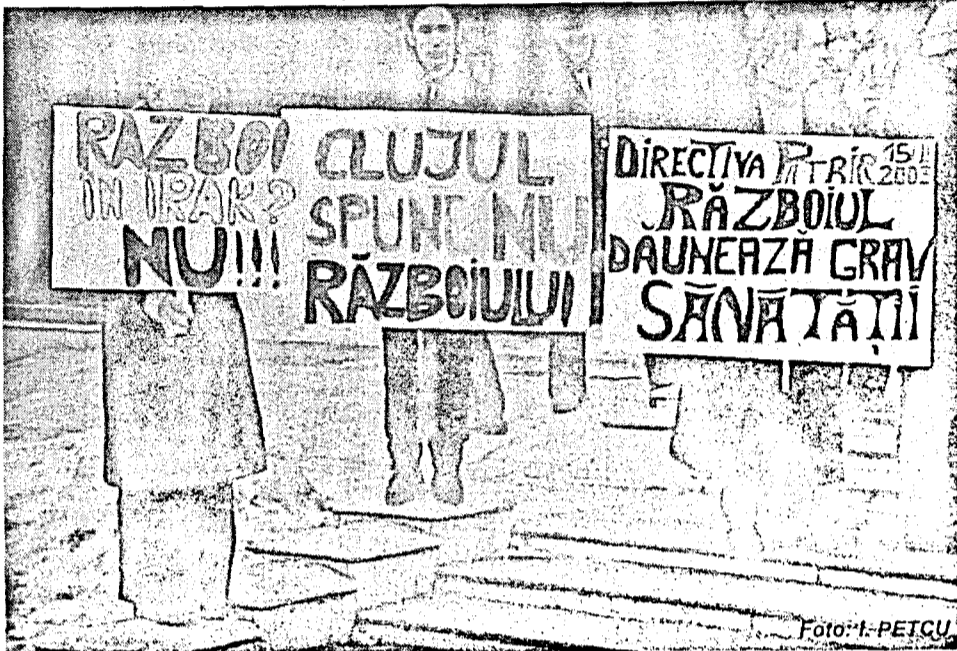 RĂZBOI
ÎN IRAK?
NU!!!
CLUJUL
SPUNE NU
RĂZBOIULUI
DIRECTIVA PTRIR 15/I
2003
RĂZBOIUL
DĂUNEAZĂ GRAV
SĂNĂTĂȚII
Foto: I. PETCU